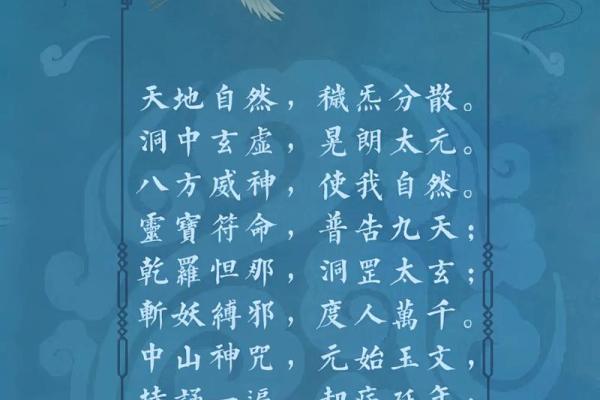 天地自然，穢炁分散。
洞中玄虛，晃朗太元。
八方威神，使我自然。
靈寶符命，普告九天；
乾羅怛那，洞罡太玄；
斬妖縛邪，度人萬千。
中山神咒，元始玉文，
持誦一遍，却病延年；